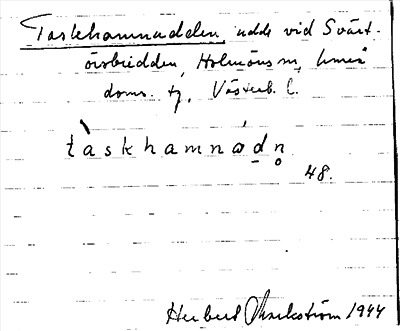 Taskhamnudden, udde vid Svart-
örsbådden, Holmöns sn, Umeå
doms. tg, Västerb. l.
tàskhamnúdn̥
48.
Herbert Markström 1944